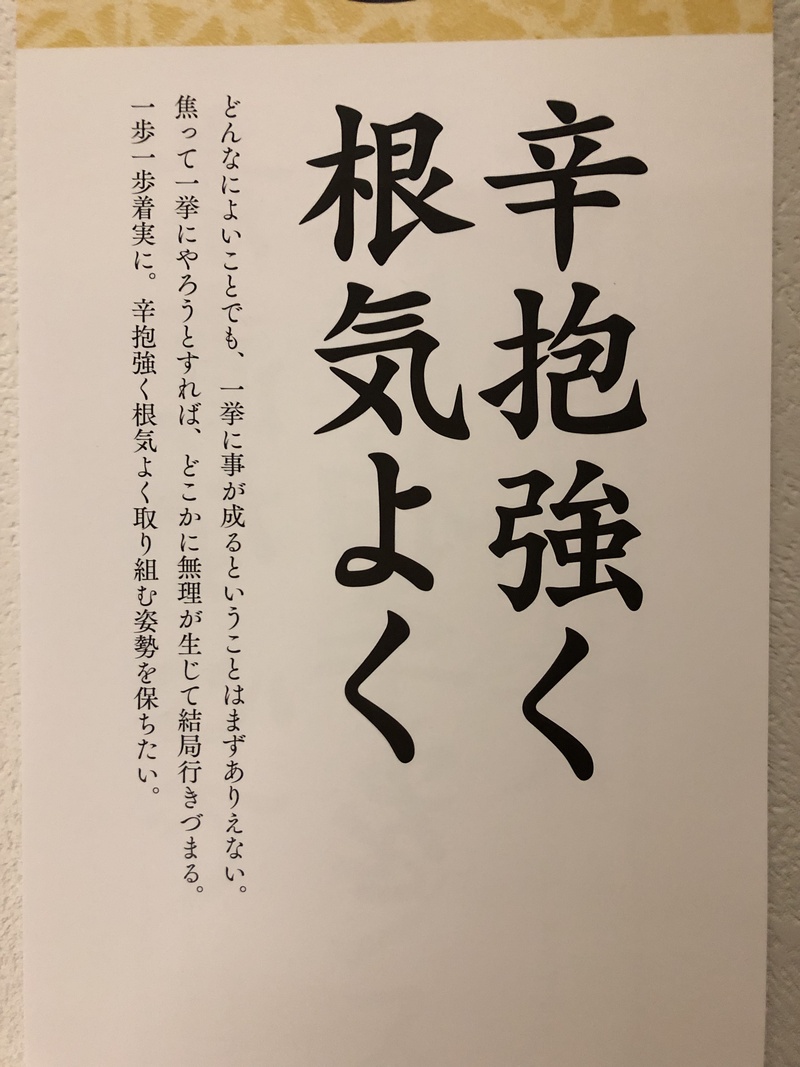 辛抱強く
根気よく
どんなによいことでも、一挙に事が成るということはまずありえない。
焦って一挙にやろうとすれば、どこかに無理が生じて結局行きづまる。
一歩一歩着実に。辛抱強く根気よく取り組む姿勢を保ちたい。